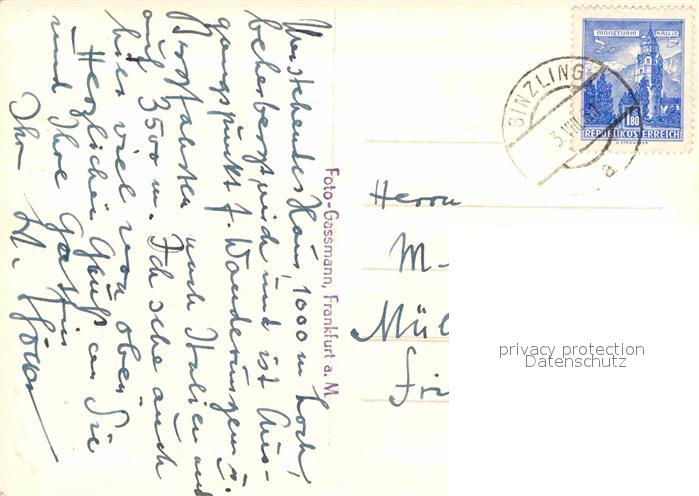 Umstehendes Haus, 1000 m hoch,
beherbergt mich und ist Aus-
gangspunkt f. Wanderungen u.
Bergfahrten nach Italien und
auf 3500 m. Ich sehe auch
hier viel von oben.
Herzlichen Gruß an Sie
und Ihre Gattin
Ihr
Foto-Gassmann, Frankfurt a. M.
MÜNZTURM HALL i.T.
S 1.80
REPUBLIK ÖSTERREICH
GINZLING
Herrn
M-
Mül
Fri
privacy protection
Datenschutz